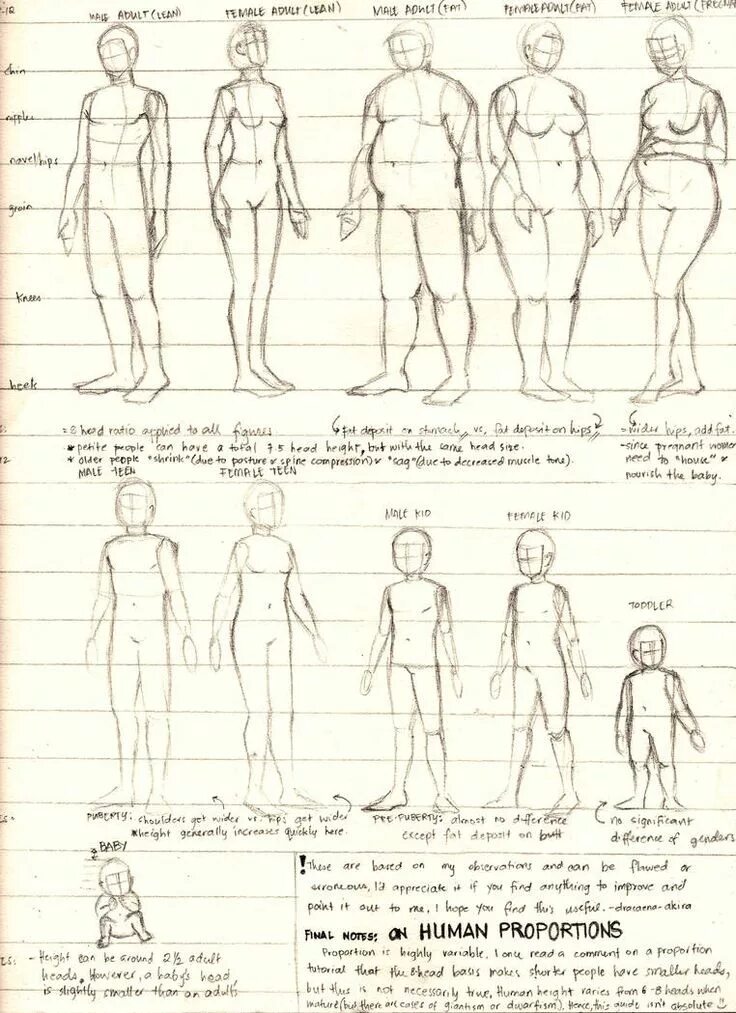 -12
MALE ADULT (LEAN)
FEMALE ADULT (LEAN)
MALE ADULT (FAT)
FEMALE ADULT (FAT)
FEMALE ADULT (PREGNA
chin
nipples
navel/hips
groin
knees
heels
= 8 head ratio applied to all figures
* petite people can have a total 7.5 head height, but with the same head size.
* older people "shrink" (due to posture & spine compression) & "sag" (due to decreased muscle tone).
fat deposit on stomach, vs. fat deposit on hips
= wider hips, add fat.
- since pregnant women
need to "house" &
nourish the baby.
MALE TEEN
FEMALE TEEN
MALE KID
FEMALE KID
TODDLER
PUBERTY: shoulders get wider vs. hips get wider
*height generally increases quickly here.
PRE-PUBERTY: almost no difference
except fat deposit on butt
no significant
difference of genders
BABY
- Height can be around 2 1/2 adult
heads. However, a baby's head
is slightly smaller than an adult's
! These are based on my observations and can be flawed or
erroneous, I'd appreciate it if you find anything to improve and
point it out to me. I hope you find this useful. -dracaena-akira
FINAL NOTES: ON HUMAN PROPORTIONS
Proportion is highly variable. I once read a comment on a proportion
tutorial that the 8head basis makes shorter people have smaller heads,
but this is not necessarily true. Human height varies from 6-8 heads when
mature (but there are cases of giantism or dwarfism). Hence, this guide isn't absolute